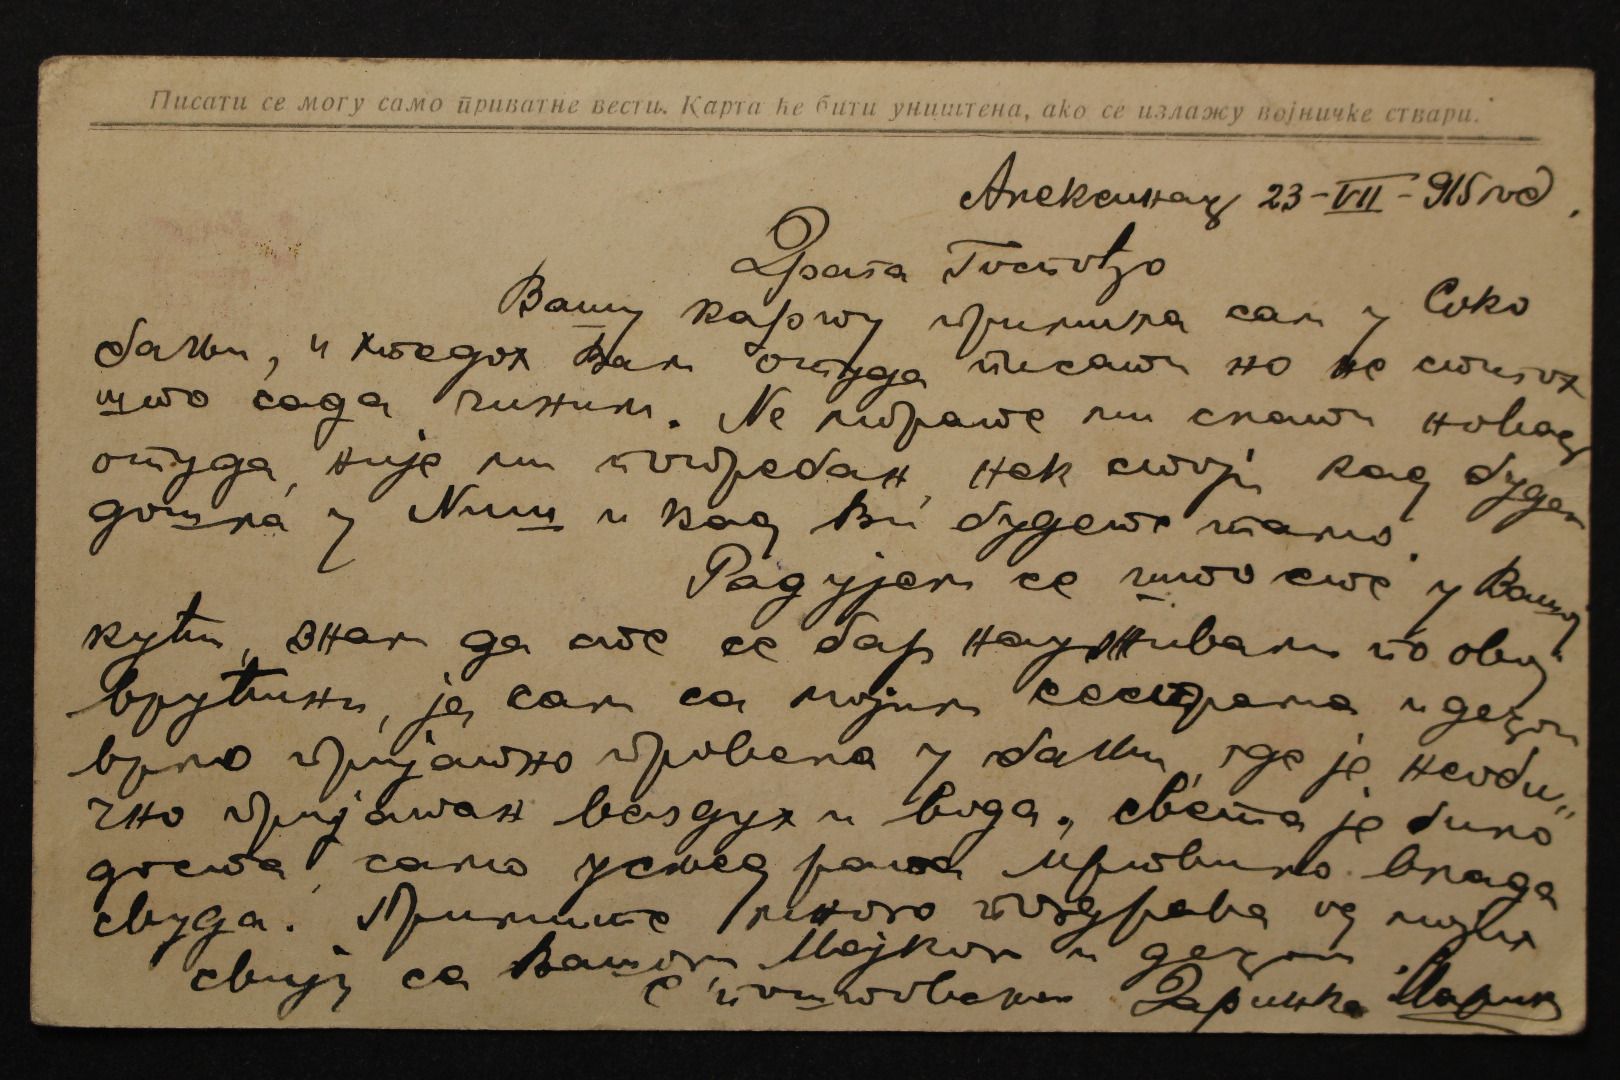 Писати се могу само приватне вести. Карта ће бити уништена, ако се излажу војничке ствари.
Алексинац 23-VII-915 год.
Драга Госпођо
Вашу карту примила сам у Соко
бањи, и хтедох Вам отуда писати но не стигох
што сада чиним. Не морате ми слати новац
отуда, није ми потребан, нек стоји кад будем
дошла у Ниш и кад Ви будете тамо.
Радујем се што сте у Вашој
кући, знам да сте се бар науживали по овој
врућини, ја сам са мојим сестрама и децом
врло пријатно провела у бањи, где је необи„
чно пријатан ваздух и вода, света је било
доста, само услед рата мртвило влада
свуда. Примите много поздрава од мојих
свију са Вашом Мајком и децом
с поштовањем Даринка Марић